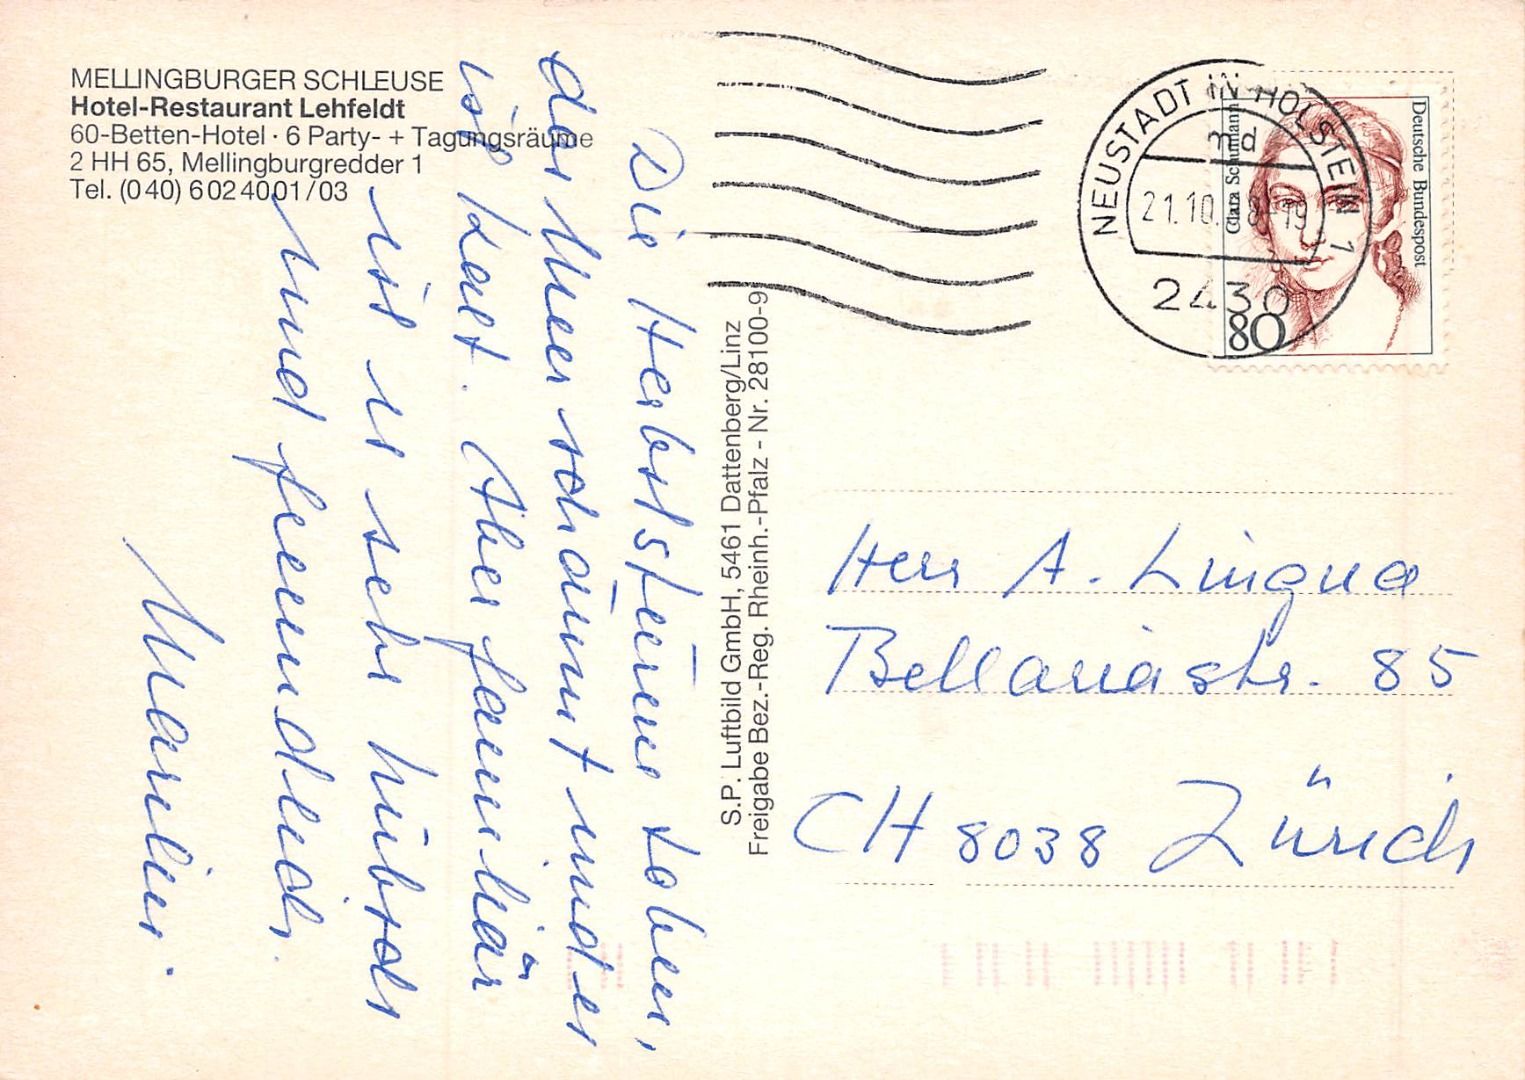 MELLINGBURGER SCHLEUSE
Hotel-Restaurant Lehfeldt
60-Betten-Hotel · 6 Party- + Tagungsräume
2 HH 65, Mellingburgredder 1
Tel. (040) 6024001/03
Die Herbststürme toben,
das Meer schäumt und es
ist kalt. Aber familiär
ist es sehr hübsch
und freundlich.
S.P. Luftbild GmbH, 5461 Dattenberg/Linz
Freigabe Bez.-Reg. Rheinh.-Pfalz - Nr. 28100-9
NEUSTADT IN HOLSTEIN 1
md
21.10. 8-19
2430
Clara Schumann
Deutsche Bundespost
80
Herr A. Lingua
Bellariastr. 85
CH 8038 Zürich